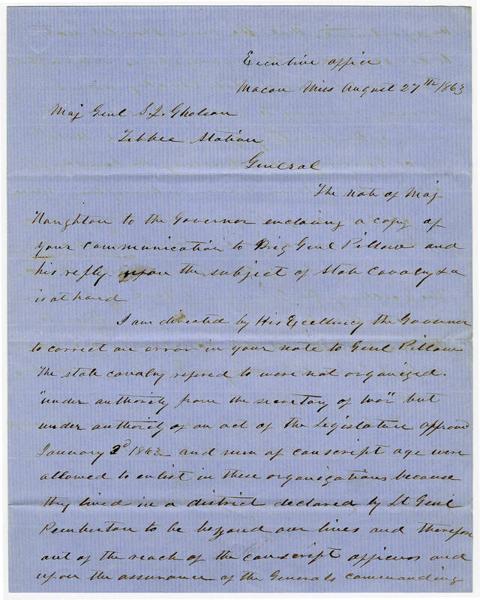 Executive Office
Macon Miss August 27th 1863
Maj Genl S. J. Gholson
Tibbee Station
General
The note of Maj
Naughton to the Governor enclosing a copy of
your communication to Brig Genl Pillow and
his reply upon the subject of State Cavalry &a
is at hand
I am directed by His Excellency the Governor
to correct an error in your note to Genl Pillow
The state cavalry refered to were not organized
"under authority from the secretary of war" but
under authority of an act of the Legislature approved
January 3d 1863 and men of conscript age were
allowed to enlist in these organizations because
they lived in a district declared by Lt Genl
Pemberton to be beyond our lines and therefore
out of the reach of the conscript officers and
upon the assurance of the Generals commanding